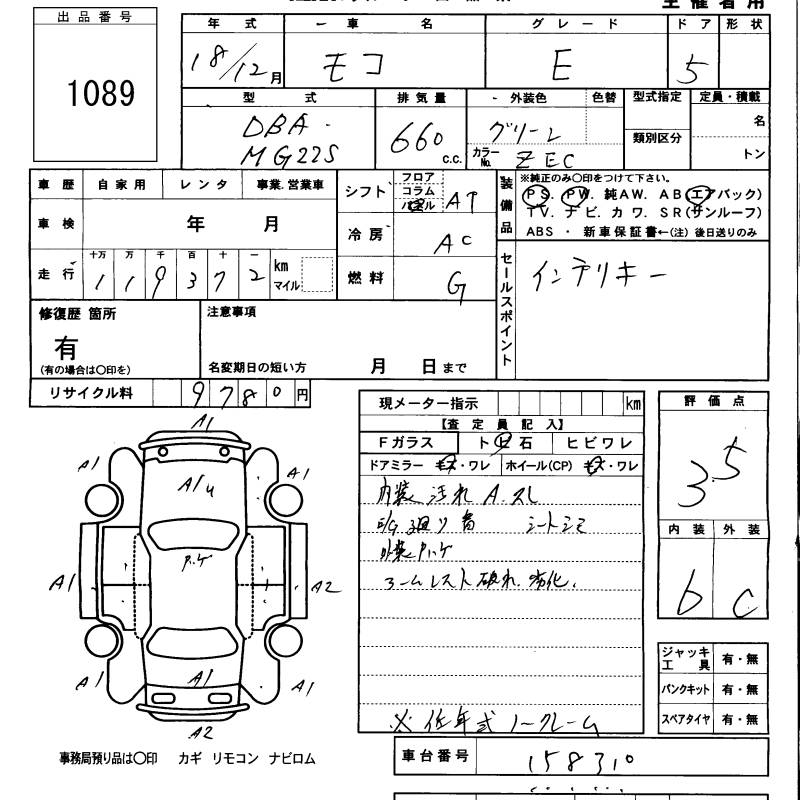 出品番号
1089
年式 一車名 グレード ドア 形状
18/12月 モコ E 5
型式 排気量 外装色 色替 型式指定 定員・積載
DBA- 660 c.c. グリーン 名
MG22S カラーNo. ZEC 類別区分 トン
車歴 自家用 レンタ 事業.営業車 シフト フロア コラム パネル AT
装備品 ※純正のみ○印をつけて下さい。
PS. PW. 純AW. AB(エアバック)
TV. ナビ. カワ. SR(サンルーフ)
ABS ・ 新車保証書←(注)後日送りのみ
車検 年 月 冷房 AC
走行 十万 万 千 百 十 一
119372 km マイル 燃料 G
セールスポイント インテリキー
修復歴 箇所 注意事項
有
(有の場合は○印を) 名変期日の短い方 月 日まで
リサイクル料 9780円
現メーター指示 km
【査定員記入】
Fガラス トビ石 ヒビワレ
ドアミラー キズ・ワレ ホイール(CP) キズ・ワレ
内装 汚れ A.スレ
E/G廻り音 シートシミ
外装 P.ハゲ
アームレスト破れ.劣化.
※低年式ノークレーム
評価点
3.5
内装 外装
b C
ジャッキ工具 有・無
パンクキット 有・無
スペアタイヤ 有・無
A1
A1 A1
A1
P.ハゲ
A1 A2
A1 A1 A1
A2
事務局預り品は○印 カギ リモコン ナビロム
車台番号 158310